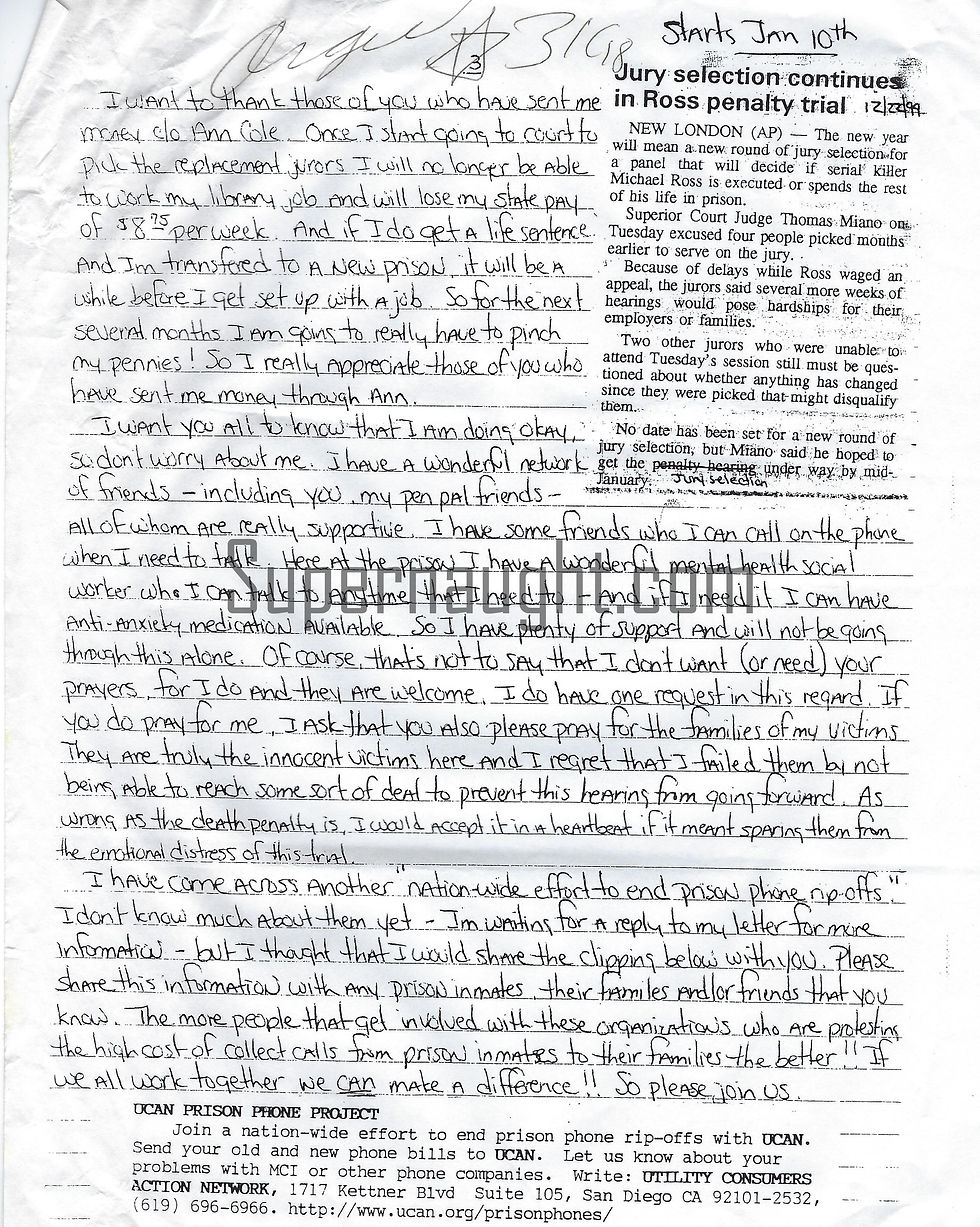 3
31698
Starts Jan 10th
Jury selection continues
in Ross penalty trial 12/22/99
NEW LONDON (AP) — The new year
will mean a new round of jury selection for
a panel that will decide if serial killer
Michael Ross is executed or spends the rest
of his life in prison.
Superior Court Judge Thomas Miano on
Tuesday excused four people picked months
earlier to serve on the jury.
Because of delays while Ross waged an
appeal, the jurors said several more weeks of
hearings would pose hardships for their
employers or families.
Two other jurors who were unable to
attend Tuesday's session still must be ques-
tioned about whether anything has changed
since they were picked that might disqualify
them.
No date has been set for a new round of
jury selection, but Miano said he hoped to
get the penalty hearing under way by mid-
January. Jury selection
I want to thank those of you who have sent me
money c/o Ann Cole. Once I start going to court to
pick the replacement jurors I will no longer be able
to work my library job and will lose my state pay
of $8.75 per week. And if I do get a life sentence
And Im transfered to a new prison, it will be a
while before I get set up with a job. So for the next
several months I am going to really have to pinch
my pennies! So I really appreciate those of you who
have sent me money through Ann.
I want you all to know that I am doing okay,
so dont worry about me. I have a wonderful network
of friends – including you, my pen pal friends –
all of whom are really supportive. I have some friends who I can call on the phone
when I need to talk. Here at the prison I have a wonderful mental health social
worker who I can talk to anytime that I need to – and if I need it I can have
anti-anxiety medication available. So I have plenty of support and will not be going
through this alone. Of course, that's not to say that I don't want (or need) your
prayers, for I do and they are welcome. I do have one request in this regard. If
you do pray for me, I ask that you also please pray for the families of my victims
They are truly the innocent victims here and I regret that I failed them by not
being able to reach some sort of deal to prevent this hearing from going forward. As
wrong as the death penalty is, I would accept it in a heartbeat if it meant sparing them from
the emotional distress of this trial.
I have come across another "nation-wide effort to end prison phone rip-offs".
I don't know much about them yet – Im waiting for a reply to my letter for more
information – but I thought that I would share the clipping below with you. Please
share this information with any prison inmates, their familes and/or friends that you
know. The more people that get involved with these organizations who are protesting
the high cost of collect calls from prison inmates to their families the better!! If
we all work together we can make a difference!! So please, join us.
UCAN PRISON PHONE PROJECT
Join a nation-wide effort to end prison phone rip-offs with UCAN.
Send your old and new phone bills to UCAN. Let us know about your
problems with MCI or other phone companies. Write: UTILITY CONSUMERS
ACTION NETWORK, 1717 Kettner Blvd Suite 105, San Diego CA 92101-2532,
(619) 696-6966. http://www.ucan.org/prisonphones/
Supernaught.com